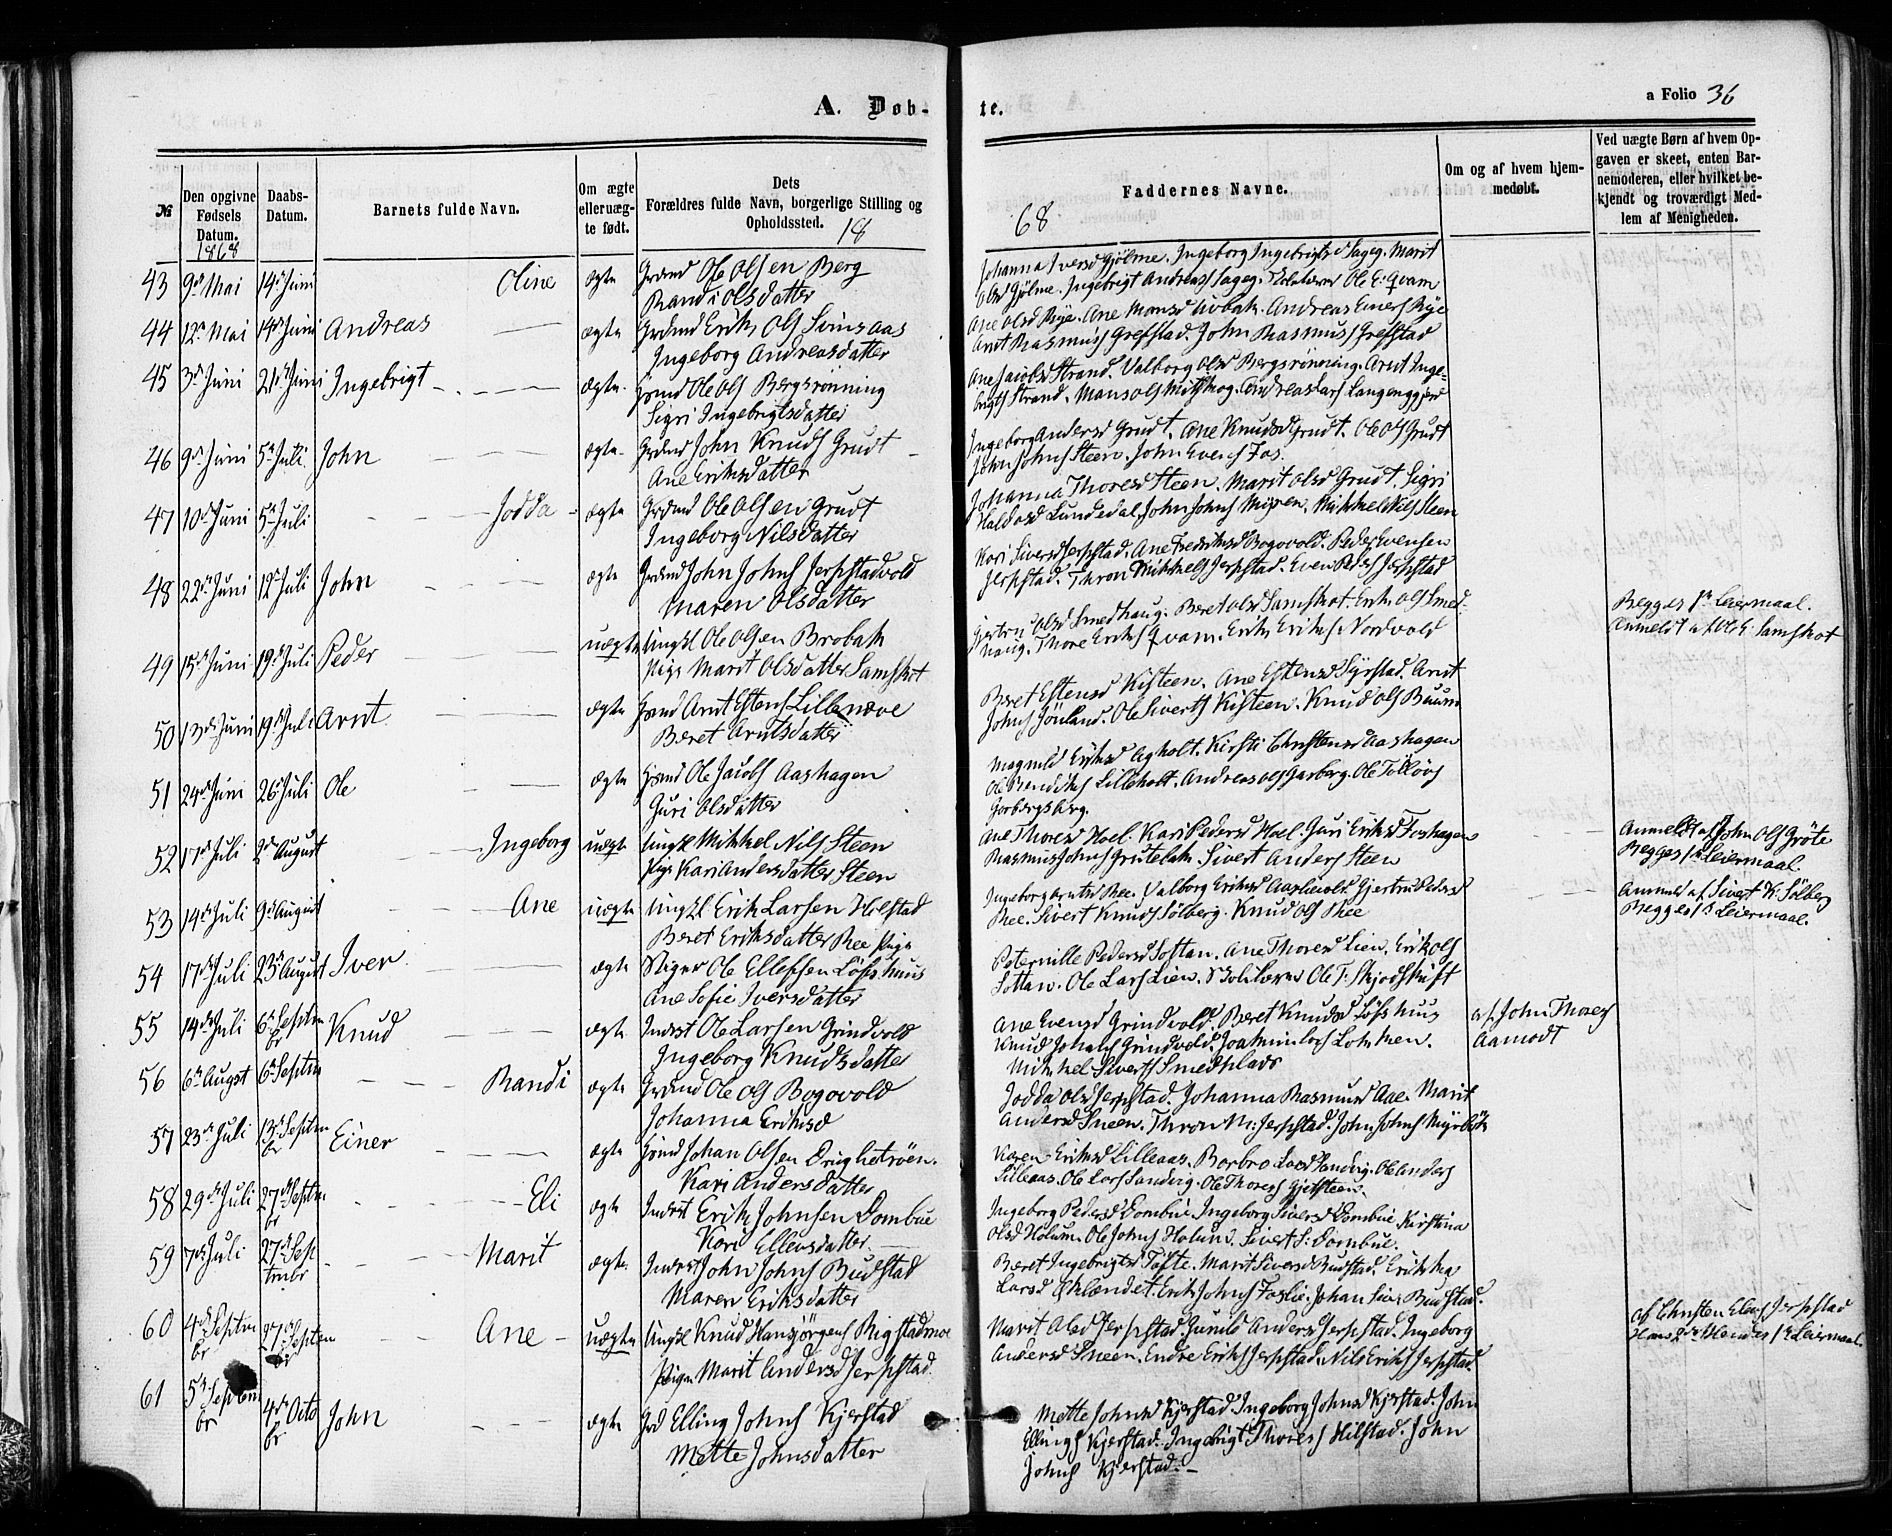 A. Døb-
te.
a Folio 36
№
Den opgivne Fødsels Datum.
1868
Daabs-Datum.
Barnets fulde Navn.
Om ægte eller uæg-te født.
Dets
Forældres fulde Navn, borgerlige Stilling og Opholdssted.
18
Faddernes Navne.
68
Om og af hvem hjem-medøbt.
Ved uægte Børn af hvem Op-
gaven er skeet, enten Bar-
nemoderen, eller hvilket be-
kjendt og troværdigt Med-
lem af Menigheden.
43 9de Mai 14de Juni Oline ægte Grdmd Ole Olsen Berg
Randi Olsdatter
Johanna Iversd Gjölme. Ingeborg Ingebrigtsd Sageg. Marit
Olsd Gjölme. Ingebrigt Andreas Sageg. Ole E. Qvam
44 12te Mai 14de Juni Andreas ægte Grdmd Erik Ols Svinsaas
Ingeborg Andreasdatter
Ane Olsd Rye. Ane Monsd Andreas Einers Rye
Arnt Rasmus Grefstad. John Rasmus Grefstad
45 3de Juni 21de Juni Ingebrigt ægte Ole Ols Bergsrönning
Sigri Ingebrigtsdatter
Ane Jacobsd Strand. Valborg Olsd Bergsrönning. Arnt Inge-
brigts Strand. Mons Ols
46 9de Juni 5te Juli John ægte Grdmd John Knuds Grudt
Ane Eriksdatter
Ingeborg Andersd Grudt. Ane Knudsd Grudt. Ole Ols Grudt
John Johns Steen. John Evens Fos.
47 10de Juni 5te Juli Jodda ægte Grdmd Ole Olsen Grudt
Ingeborg Nilsdatter
Johanna Thoresd Steen. Marit Olsd Grudt. Sigri
Haldosd Lundedal. John Johns Mikkel Nils Steen
48 22de Juni 12te Juli John ægte Grdmd John Johns Jerpstadvold
Maren Olsdatter
Kari Siversd Jerpstad. Ane Fredriksd Bogovold. Peder Evensen
Jerpstad. Thron Mikkels Jerpstad. Even Peders Jerpstad
49 15de Juni 19de Juli Peder uægte Ungkl Ole Olsen Brobak
Pige Marit Olsdatter Samskot
Gjertru Olsd Smedhaug. Beret Olsd Samskot. Erik Ols Smed-
haug. Thore Eriks Qvam. Erik Eriks Nordvold
Begges 1ste Leiermaal.
Anmeldt af Ole E. Samskot
50 13de Juni 19de Juli Arnt ægte Arnt Estens Lillenæve
Beret Arntsdatter
Beret Estensd Kisteen. Ane Estensd Syrstad. Arnt
Johns Ole Siverts Kisteen. Knud Ols
51 24de Juni 26de Juli Ole ægte Ole Jacobs Aashagen
Guri Olsdatter
Magnild Eriksd Kirsti Christensd Aashagen
Andreas Ols Garberg. Ole
Garbergsberg.
52 17de Juli 2den August Ingeborg uægte Ungkl Mikkel Nils Steen
Pige Kari Andersdatter Steen
Ane Thoresd Hoel. Kari Pedersd Hoel. Guri Eriksd Foshagen
Rasmus Johns Sivert Anders Steen
Anmeldt af John Ols Gröte
Begges 1ste Leiermaal.
53 14de Juli 9de August Ane uægte Ungkl Erik Larsen Holstad
Beret Eriksdatter Ree Pige
Ingeborg Arntsd Ree. Valborg Eriksd Gjertru Pedersd
Ree. Sivert Knuds Sölberg. Knud Ols Ree
Anmeld af Sivert K. Sölberg
Begges 1ste Leiermaal.
54 17de Juli 23de August Iver ægte Ole Ellefsen Löfshuus
Ane Sofie Iversdatter
Peternille Pedersd Ane Thoresd Lien. Erik Ols
Ole Lars Lien. Ole T.
55 14de Juli 6te Septembr Knud ægte Inderst Ole Larsen Grindvold
Ingeborg Knudsdatter
Ane Evensd Grindvold. Beret Knudsd Löfshuus
Knud Johans Grindvold. Lommen.
Mikkel Siverts Smedplads
af John Thores
Aamodt
56 6te Augst 6te Septem Randi ægte Grdmd Ole Ols Bogovold
Johanna Eriksd
Jodda Olsd Jerpstad. Johanna Rasmusd Aae. Marit
Andersd Sneen. Thron M. Jerpstad. John Johns
57 23de Juli 13de Septembr Einer ægte Johan Olsen Drughetröen.
Kari Andersdatter
Karen Eriksd Lilleaas. Ole Anders
Lilleaas. Ole Lars Sandvig. Ole Thores
58 29de Juli 27de Septembr Eli ægte Inderst Erik Johnsen Dombue
Kari Ellevsdatter
Ingeborg Pedersd Dombue. Ingeborg Siversd Dombue. Kirstina
Olsd Holum. Ole Johns Holum. Sivert S. Dombue.
59 7de Juli 27de Septembr Marit ægte Inderst John Johns Budstad
Maren Eriksdatter
Beret Ingebrigtsd Tofte. Marit Siversd Budstad. Erikka
Larsd Erik Johns Foslie. Johan Siv. Budstad.
60 4de Septembr 27de Septem Ane uægte Ungkl Knud Hansjörgens Rigstadmoe
Pigen Marit Andersd Jerpstad.
Marit Olsd Jerpstad. Gunild Andersd Jerpstad. Ingeborg
Andersd Sneen. Endre Eriks Jerpstad. Nils Eriks Jerpstad.
af Christen Jerpstad
Hans 2det Hendes 1ste Leiermaal
61 5te Septembr 4de Octobr John ægte Grd Elling Johns Kjerstad
Mette Johnsdatter
Mette Johnsd Kjerstad. Ingeborg Johnsd Kjerstad. John
Ellings Kjerstad. Ingebrigt Thores Hilstad. John
Johns Kjerstad.